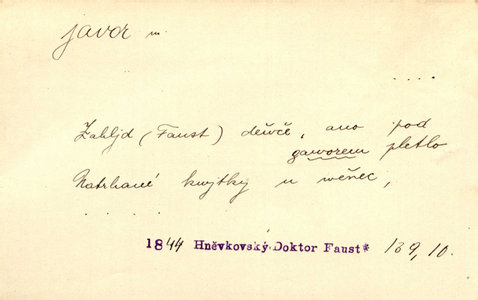 javor m.
. . . .
Zahljd (Faust) děwče, ano pod
gaworem pletlo
Natrhané kwjtky u wěnec,
. . . . .
1844 Hněvkovský.Doktor Faust* 139, 10.